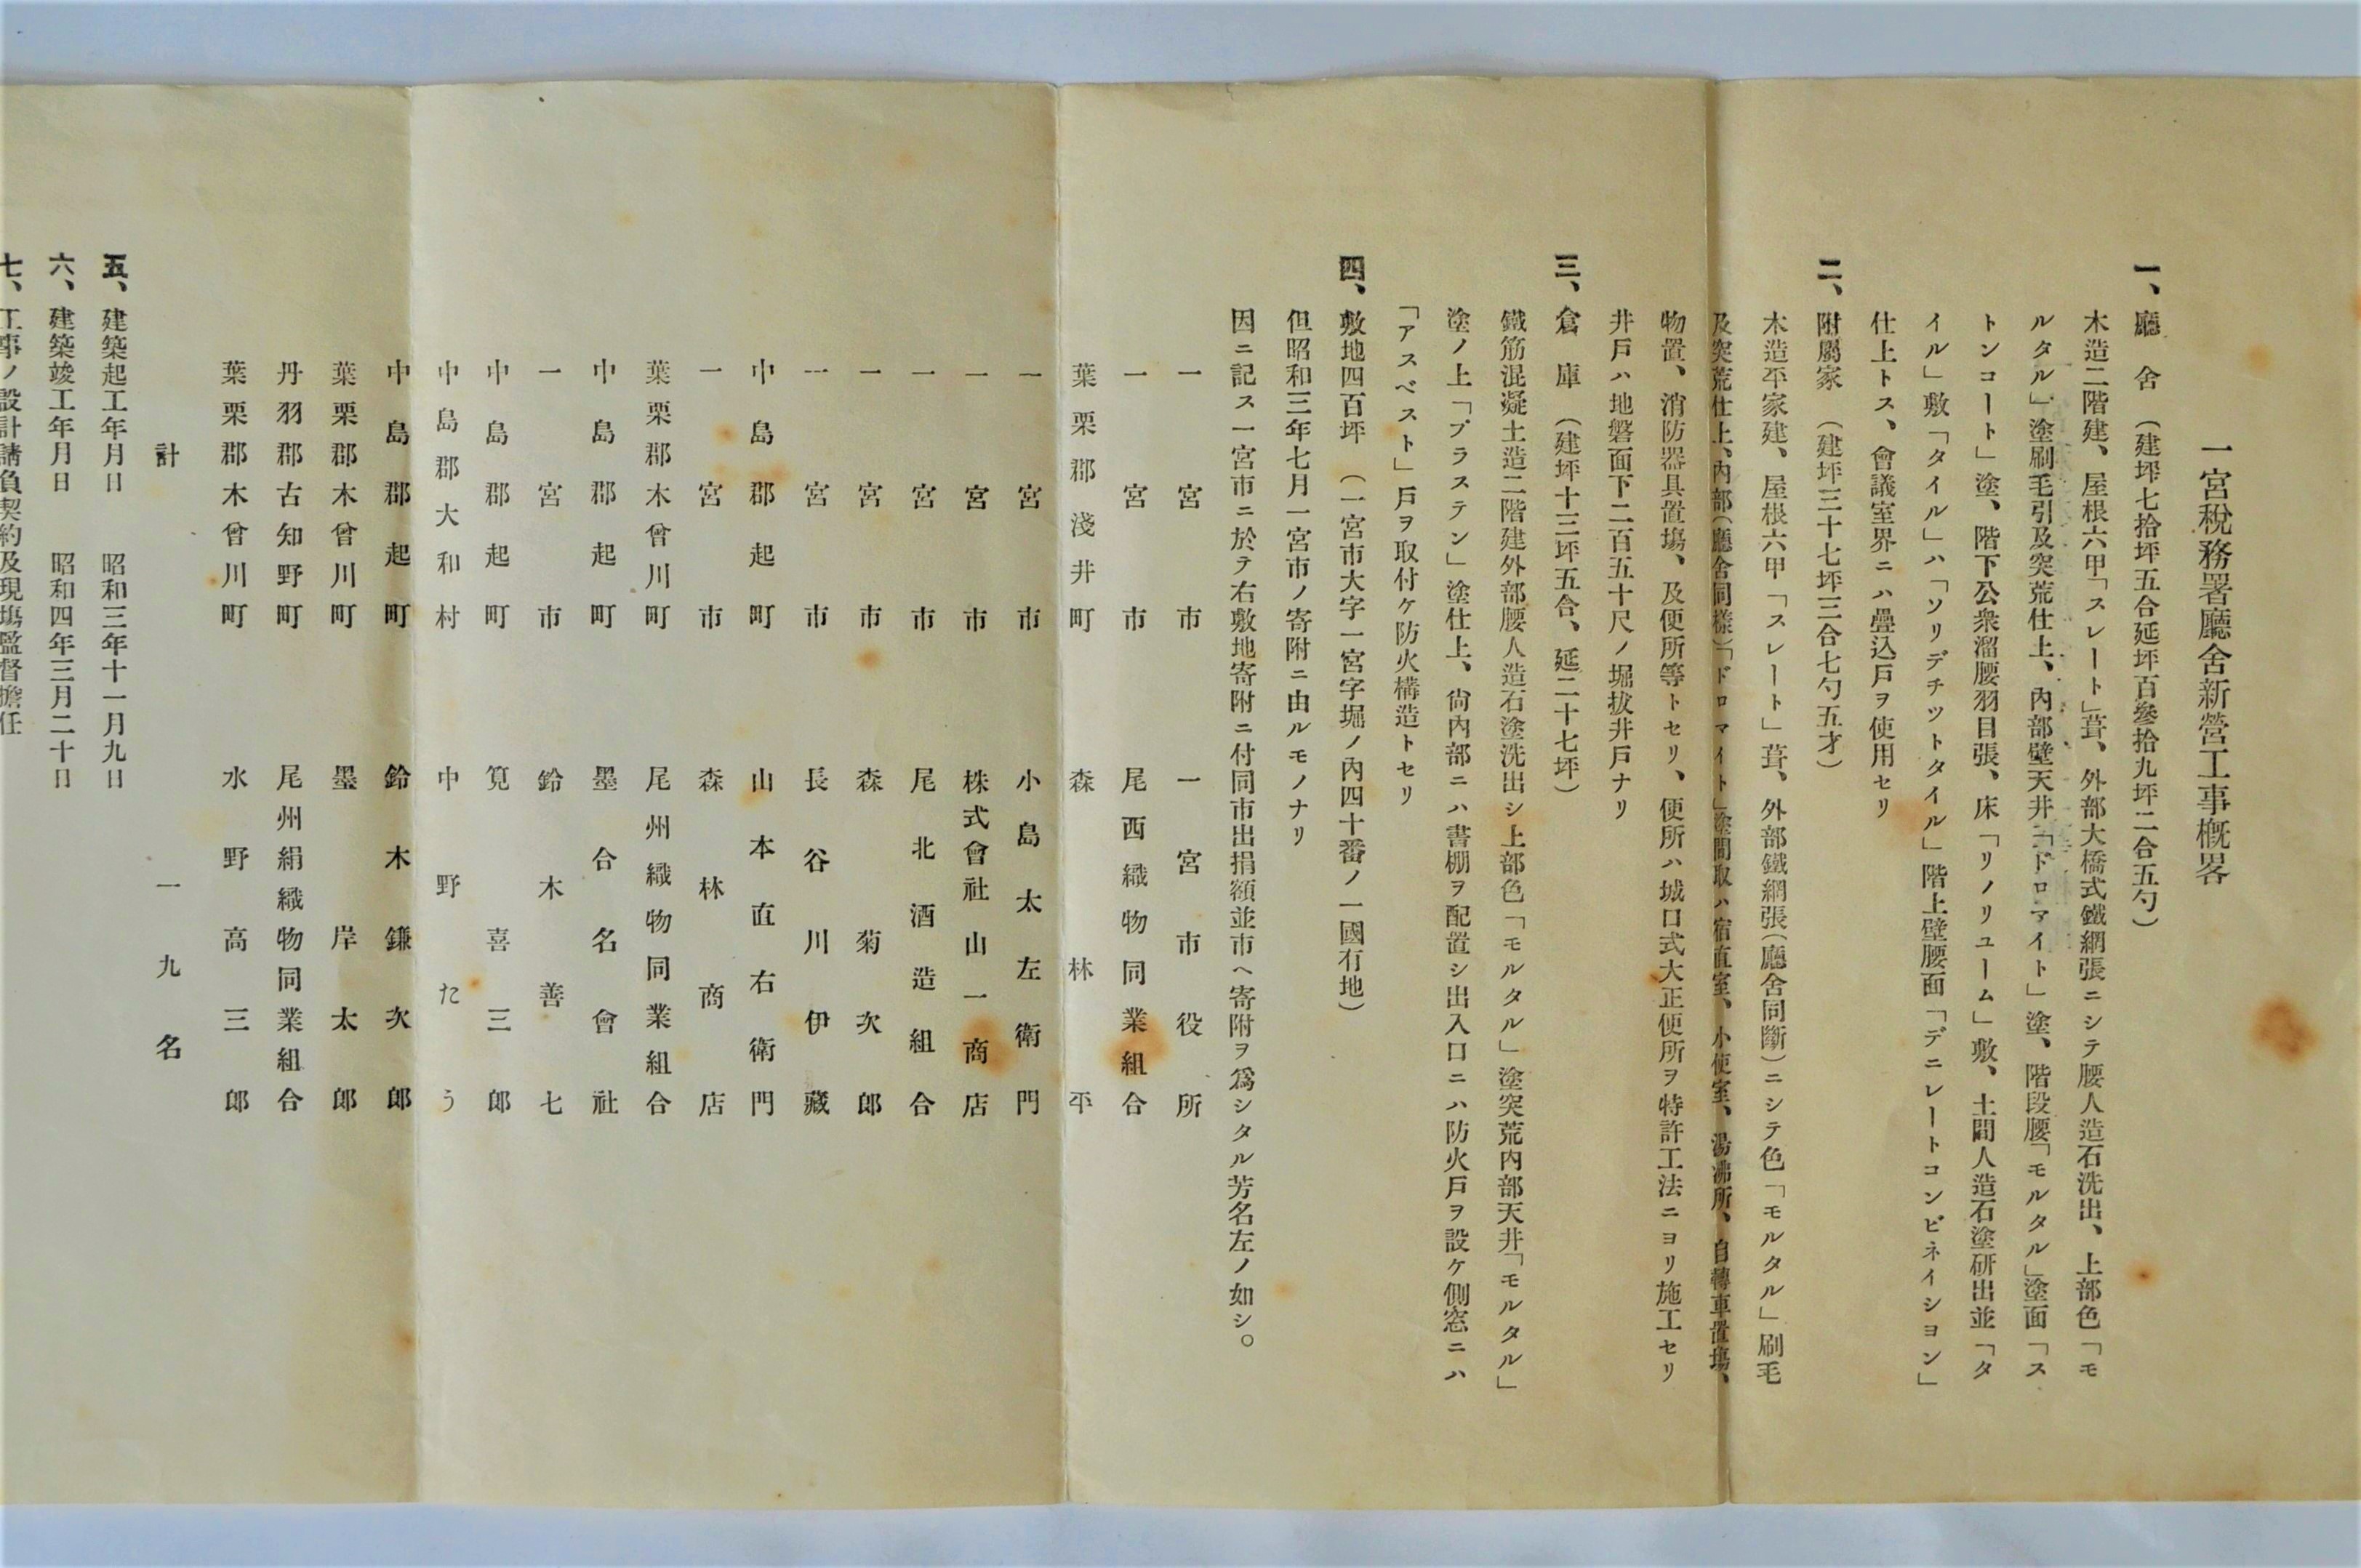 一宮稅務署廳舍新營工事槪畧
一、廳　舍　（建坪七拾坪五合延坪百參拾九坪二合五勺）
木造二階建、屋根六甲「スレート」葺、外部大橋式鐵網張ニシテ腰人造石洗出、上部色「モ
ルタル」塗刷毛引及突荒仕上、內部壁天井「ドロマイト」塗、階段腰「モルタル」塗面「ス
トンコート」塗、階下公衆溜腰羽目張、床「リノリユーム」敷、土間人造石塗硏出並「タ
イル」敷「タイル」ハ「ソリデチツトタイル」階上壁腰面「デニレートコンビネイシヨン」
仕上トス、會議室界ニハ疊込戶ヲ使用セリ
二、附屬家　（建坪三十七坪三合七勺五才）
木造平家建、屋根六甲「スレート」葺、外部鐵網張（廳舍同斷）ニシテ色「モルタル」刷毛
及突荒仕上、內部（廳舍同樣）「ドロマイト」塗間取ハ宿直室、小使室、湯沸所、自轉車置塲、
物置、消防器具置塲、及便所等トセリ、便所ハ城口式大正便所ヲ特許工法ニヨリ施工セリ
井戶ハ地磐面下二百五十尺ノ堀拔井戶ナリ
三、倉　庫　（建坪十三坪五合、延二十七坪）
鐵筋混凝土造二階建外部腰人造石塗洗出シ上部色「モルタル」塗突荒內部天井「モルタル」
塗ノ上「プラステン」塗仕上、尙內部ニハ書棚ヲ配置シ出入口ニハ防火戶ヲ設ケ側窓ニハ
「アスベスト」戶ヲ取付ケ防火構造トセリ
四、敷地四百坪　（一宮市大字一宮字堀ノ內四十番ノ一國有地）
但昭和三年七月一宮市ノ寄附ニ由ルモノナリ
因ニ記ス一宮市ニ於テ右敷地寄附ニ付同市出捐額並市ヘ寄附ヲ爲シタル芳名左ノ如シ。
一宮市　一宮市役所
一宮市　尾西織物同業組合
葉栗郡淺井町　森林平
一宮市　小島太左衞門
一宮市　株式會社山一商店
一宮市　尾北酒造組合
一宮市　森菊次郎
一宮市　長谷川伊藏
中島郡起町　山本直右衞門
一宮市　森林商店
葉栗郡木曾川町　尾州織物同業組合
中島郡起町　墨合名會社
一宮市　鈴木善七
中島郡起町　筧喜三郎
中島郡大和村　中野たう
中島郡起町　鈴木鎌次郎
葉栗郡木曾川町　墨岸太郎
丹羽郡古知野町　尾州絹織物同業組合
葉栗郡木曾川町　水野高三郎
計　一九名
五、建築起工年月日　昭和三年十一月九日
六、建築竣工年月日　昭和四年三月二十日
七、工事ノ設計請負契約及現塲監督擔任